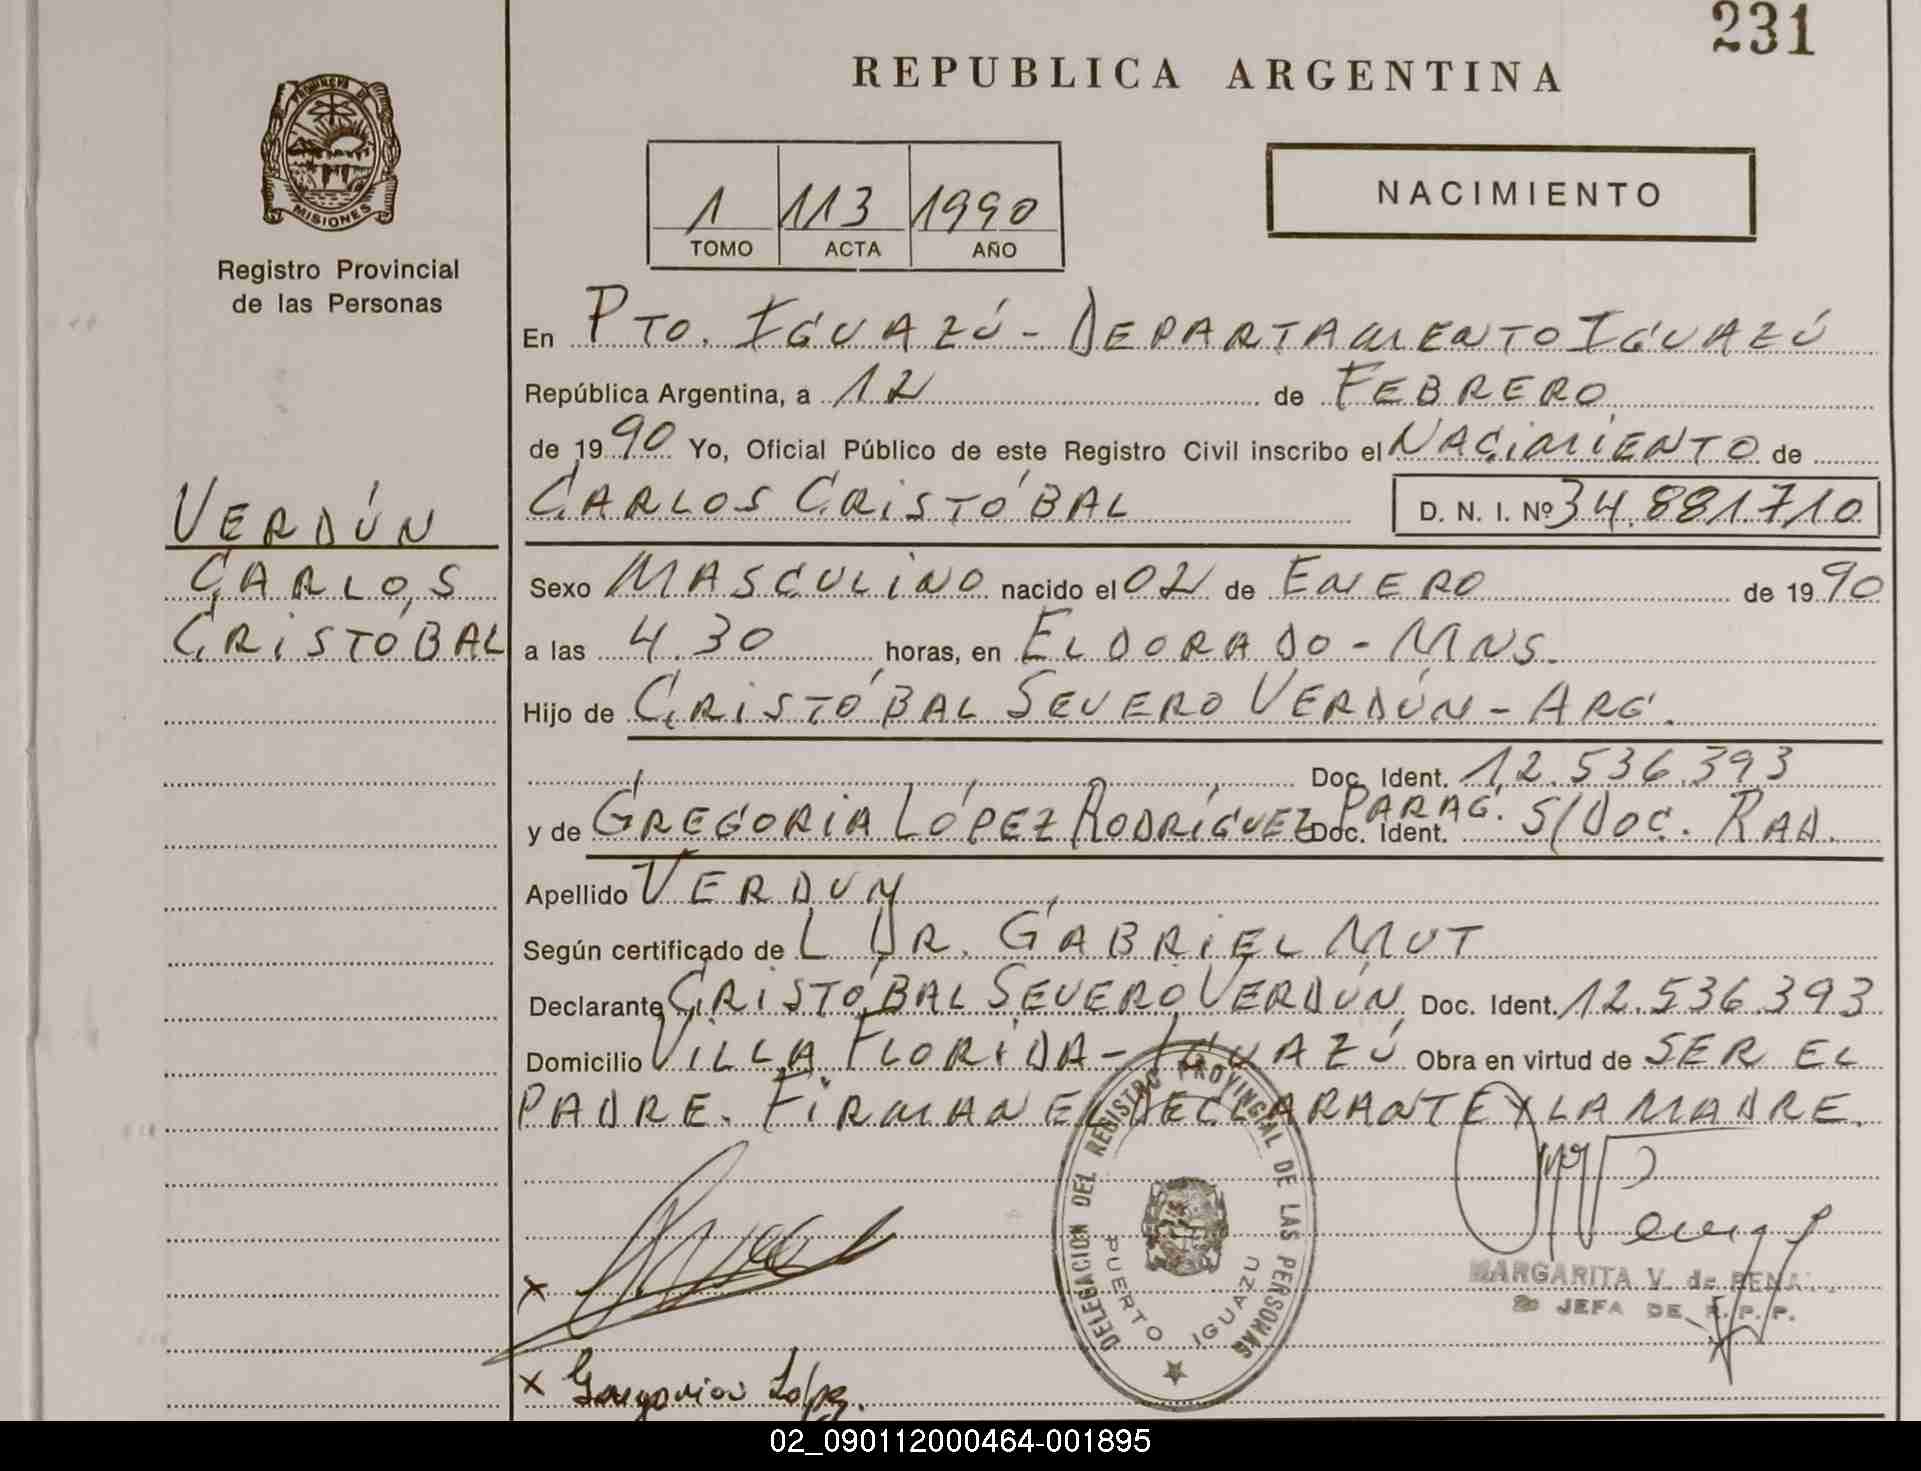 231
REPUBLICA ARGENTINA
PROVINCIA DE
MISIONES
Registro Provincial
de las Personas
1 113 1990
TOMO ACTA AÑO
NACIMIENTO
En PTO. IGUAZÚ - DEPARTAMENTO IGUAZÚ
República Argentina, a 12 de FEBRERO
de 1990 Yo, Oficial Público de este Registro Civil inscribo el NACIMIENTO de
CARLOS CRISTÓBAL D. N. I. Nº 34.881.710
VERDÚN
CARLOS
CRISTÓBAL
Sexo MASCULINO nacido el 02 de ENERO de 1990
a las 4.30 horas, en ELDORADO - MNS.
Hijo de CRISTÓBAL SEVERO VERDÚN - ARG.
Doc. Ident. 12.536.393
y de GREGORIA LÓPEZ RODRÍGUEZ PARAG. Doc. Ident. S/DOC. RAD.
Apellido VERDUN
Según certificado de L DR. GABRIEL MUT
Declarante CRISTÓBAL SEVERO VERDÚN Doc. Ident. 12.536.393
Domicilio VILLA FLORIDA - IGUAZÚ Obra en virtud de SER EL
PADRE. FIRMAN EL DECLARANTE Y LA MADRE.
DELEGACION DEL REGISTRO PROVINCIAL DE LAS PERSONAS
PUERTO IGUAZU
MARGARITA V. de
JEFA DE R.P.P.
x
x Gregoria López.
02_090112000464-001895